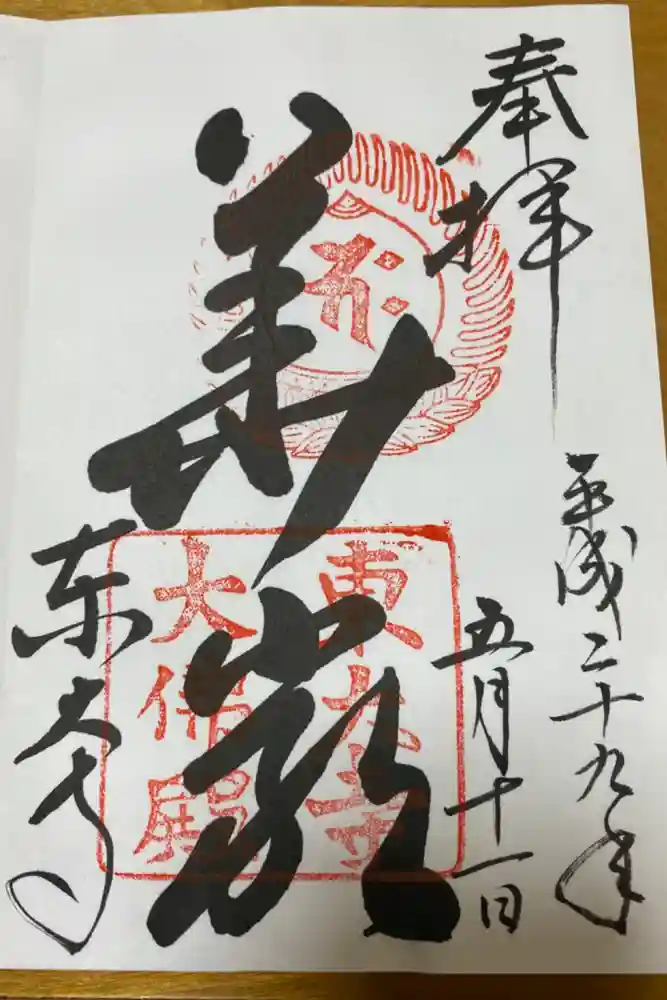 奉拝
平成二十九年
五月十一日
華厳
東大寺
大佛殿
東大寺